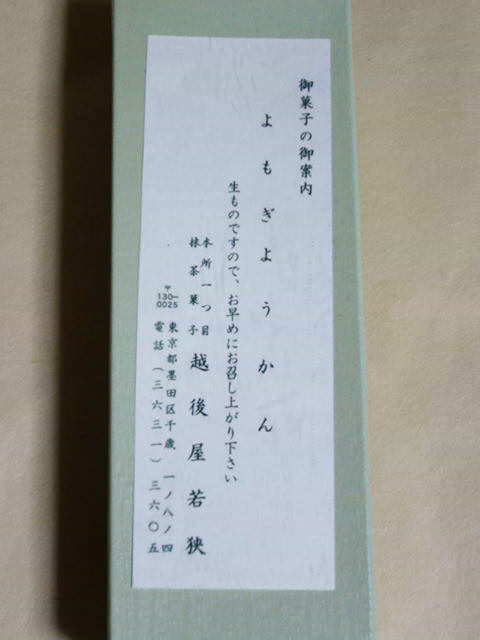 御菓子の御案内
よもぎようかん
生ものですので、お早めにお召し上がり下さい
本所一つ目
抹茶菓子
越後屋若狭
〒130-0025
東京都墨田区千歳 一ノ八ノ四
電話(三六三一)三六〇五